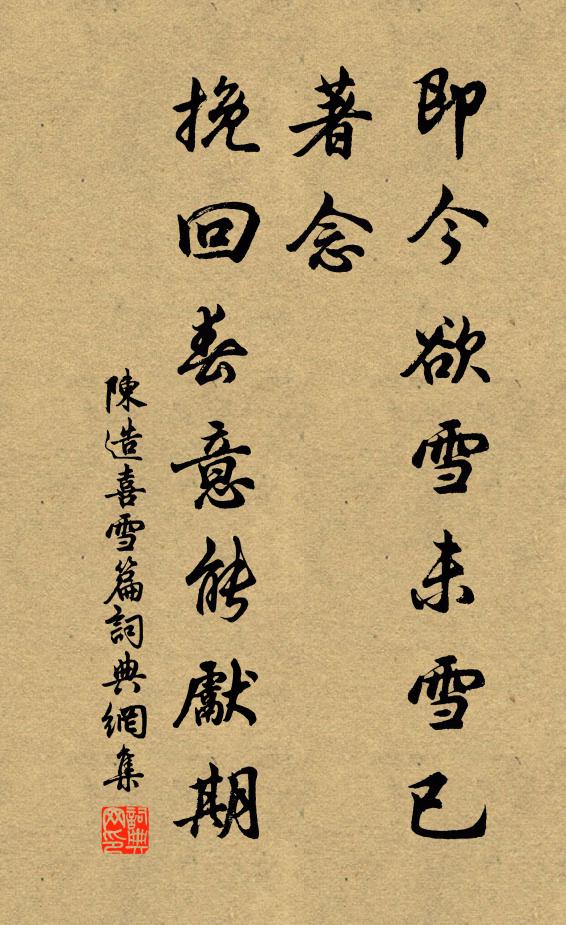 即今欲雪未雪已
著念
挽回春意能獻期
陳造喜雪篇詞典網集
詞典
网印